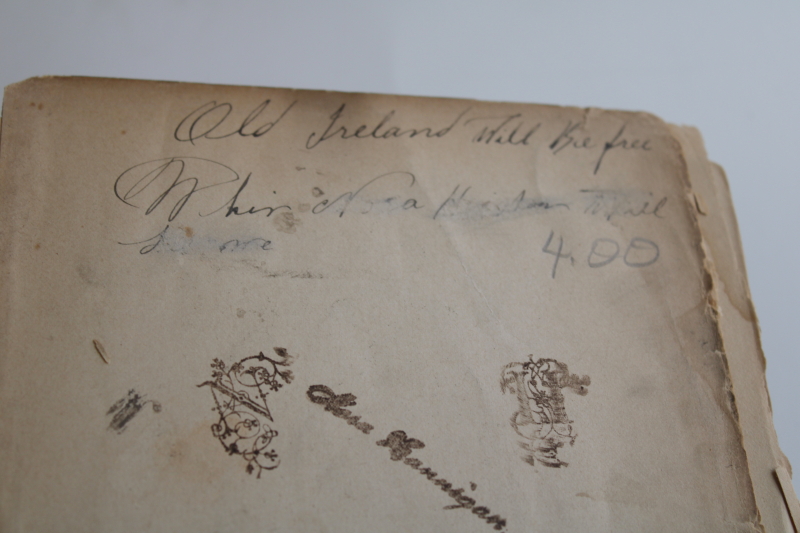 Old Ireland Will Be free
Whin Nora Will
me
4.00
Hannigan